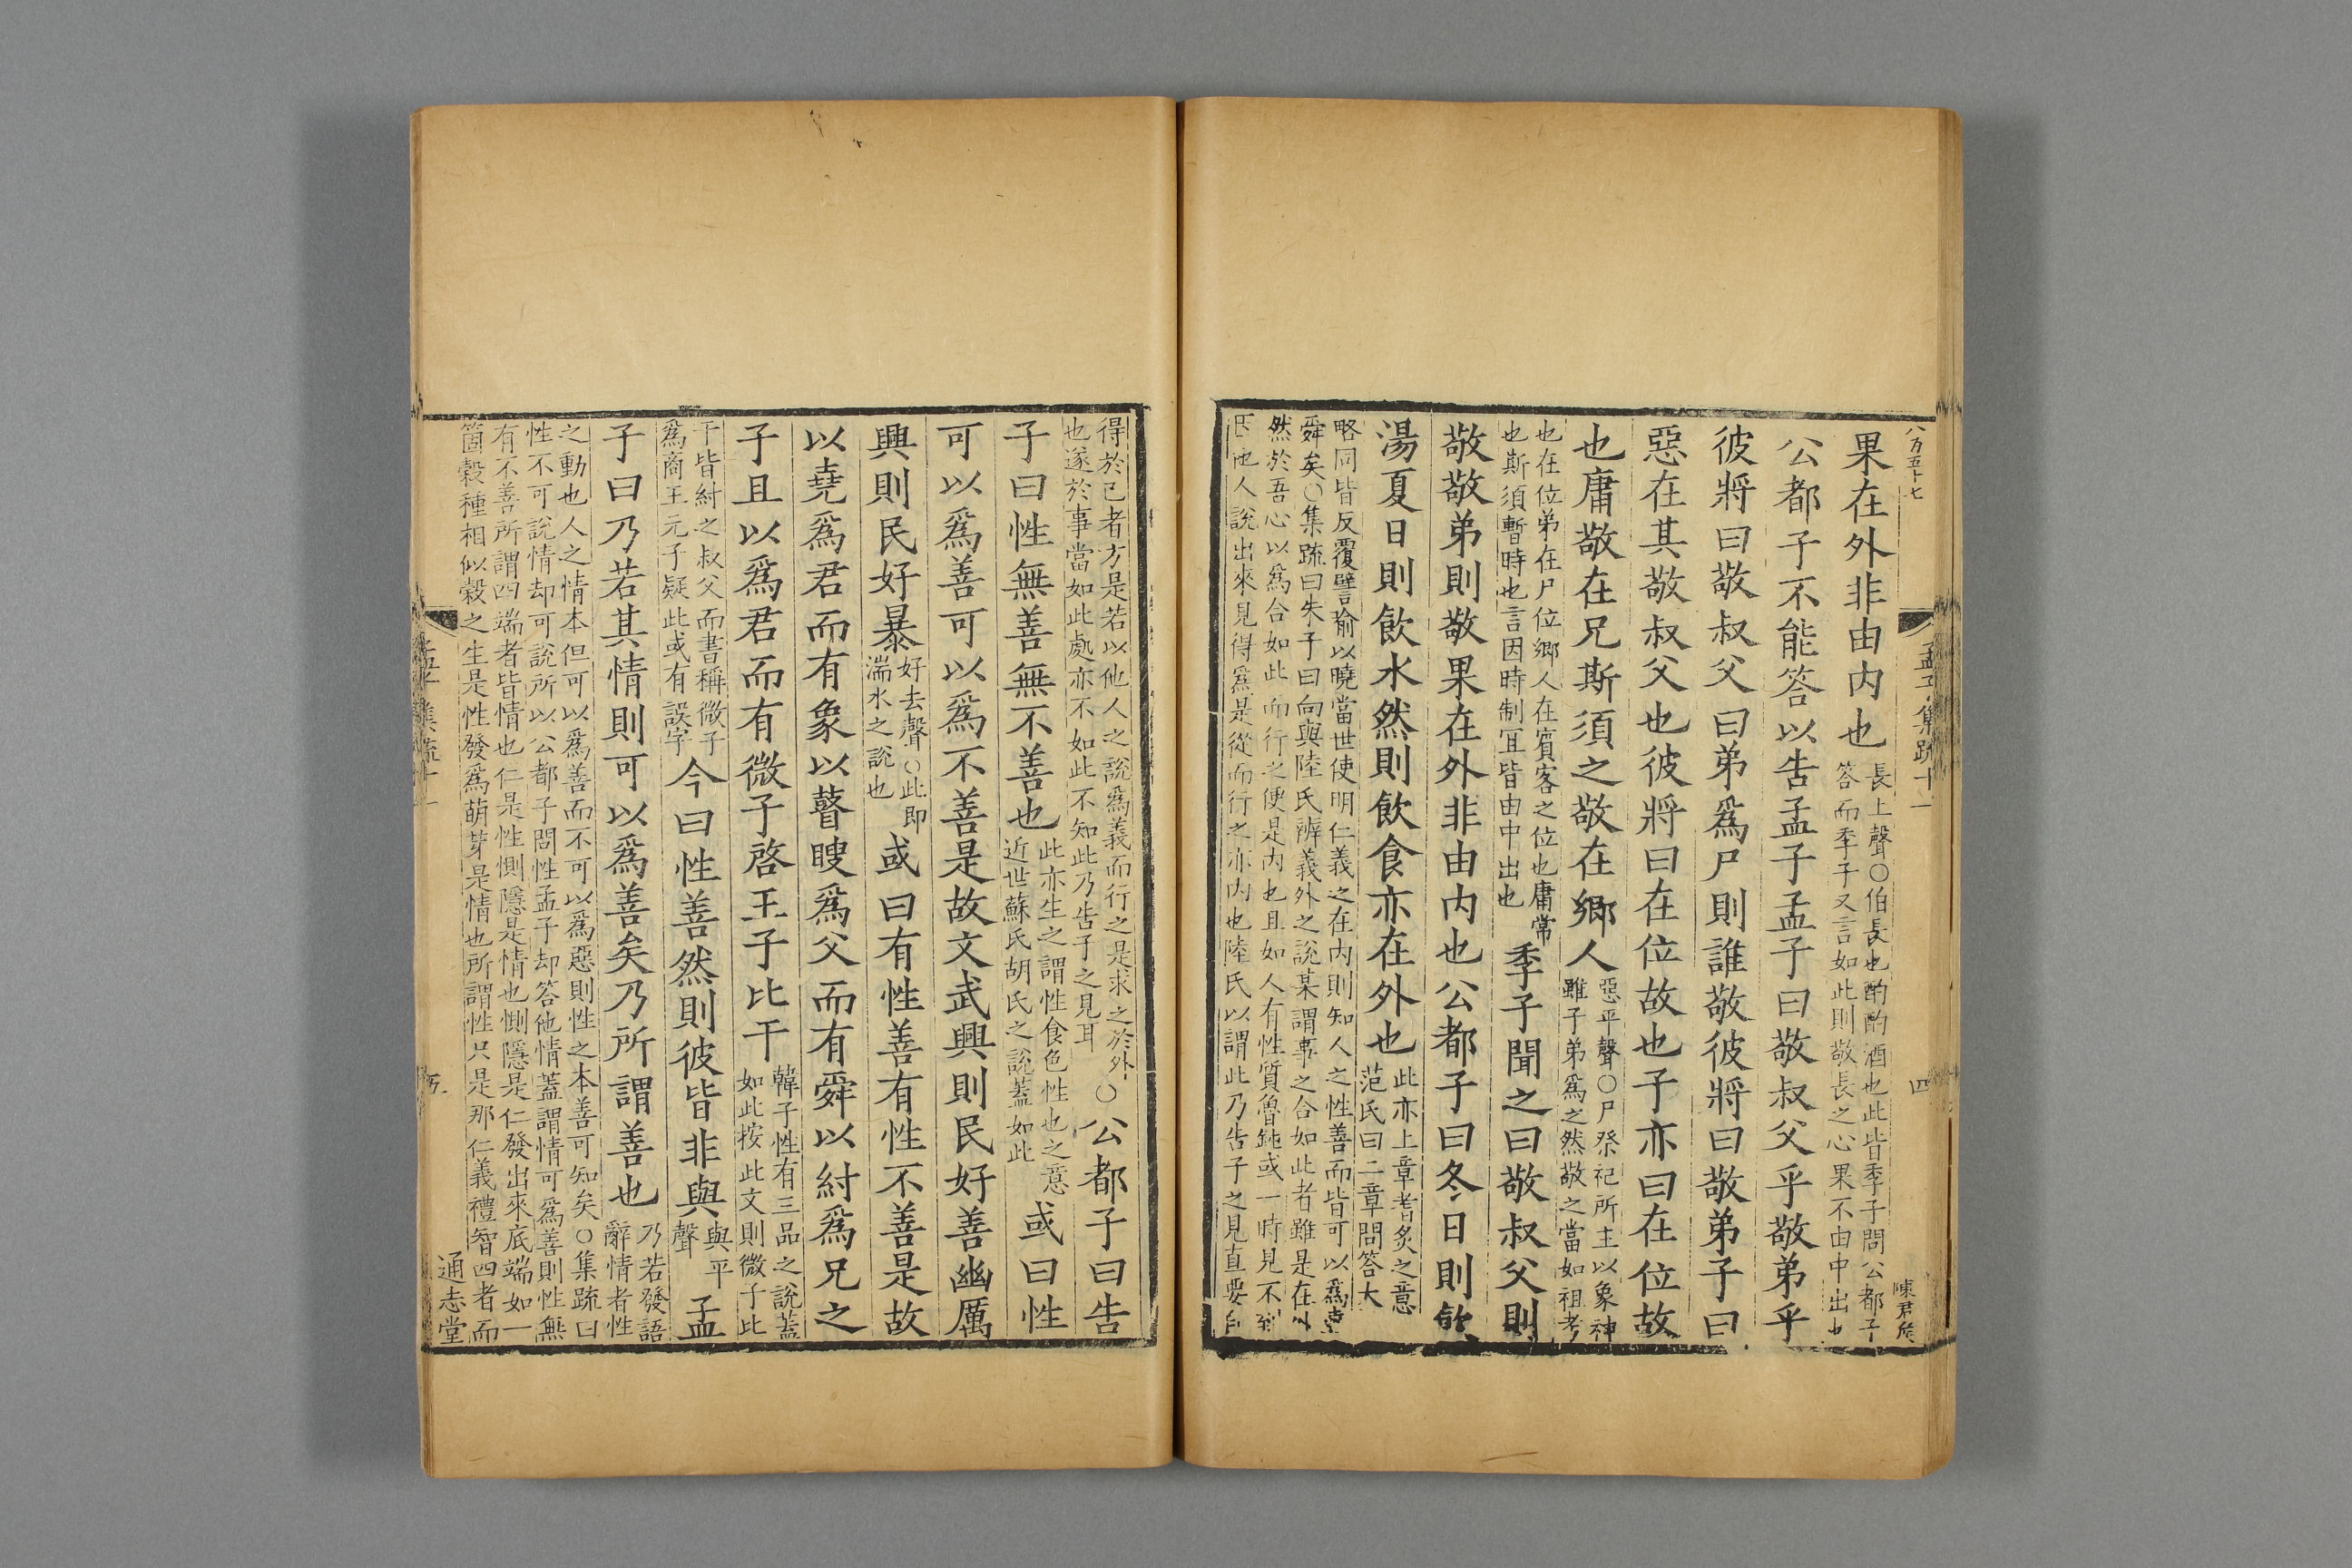 八百五十七
孟子集疏十一
四
陳君矦
果在外非由内也長上聲○伯長也酌酌酒也此皆季子問公都子
答而季子又言如此則敬長之心果不由中出也
公都子不能答以告孟子孟子曰敬叔父乎敬弟乎
彼將曰敬叔父曰弟爲尸則誰敬彼將曰敬弟子曰
惡在其敬叔父也彼將曰在位故也子亦曰在位故
也庸敬在兄斯須之敬在鄉人惡平聲○尸祭祀所主以象神
雖子弟爲之然敬之當如祖考
也在位弟在尸位鄉人在賓客之位也庸常
也斯須暫時也言因時制宜皆由中出也
季子聞之曰敬叔父則
敬敬弟則敬果在外非由内也公都子曰冬日則飲
湯夏日則飲水然則飲食亦在外也此亦上章耆炙之意
范氏曰二章問答大
略同皆反覆譬喻以曉當世使明仁義之在内則知人之性善而皆可以爲堯
舜矣○集疏曰朱子曰向與陸氏辨義外之說某謂事之合如此者雖是在外
然於吾心以爲合如此而行之便是内也且如人有性質魯鈍或一時見不到
因他人說出來見得爲是從而行之亦内也陸氏以謂此乃告子之見直要自
得於己者方是若以他人之說爲義而行之是求之於外
也遂於事當如此處亦不如此不知此乃告子之見耳
○公都子曰告
子曰性無善無不善也此亦生之謂性食色性也之意
近世蘇氏胡氏之說蓋如此
或曰性
可以爲善可以爲不善是故文武興則民好善幽厲
興則民好暴好去聲○此即
湍水之說也
或曰有性善有性不善是故
以堯爲君而有象以瞽瞍爲父而有舜以紂爲兄之
子且以爲君而有微子啓王子比干韓子性有三品之說蓋
如此按此文則微子此
干皆紂之叔父而書稱微子
爲商王元子疑此或有誤字
今曰性善然則彼皆非與與平
聲
孟
子曰乃若其情則可以爲善矣乃所謂善也乃若發語
辭情者性
之動也人之情本但可以爲善而不可以爲惡則性之本善可知矣○集疏曰
性不可說情却可說所以公都子問性孟子却答他情蓋謂情可爲善則性無
有不善所謂四端者皆情也仁是性惻隱是情也惻隱是仁發出來底端如一
箇穀種相似穀之生是性發爲萌芽是情也所謂性只是那仁義禮智四者而
集疏十一
五
通志堂